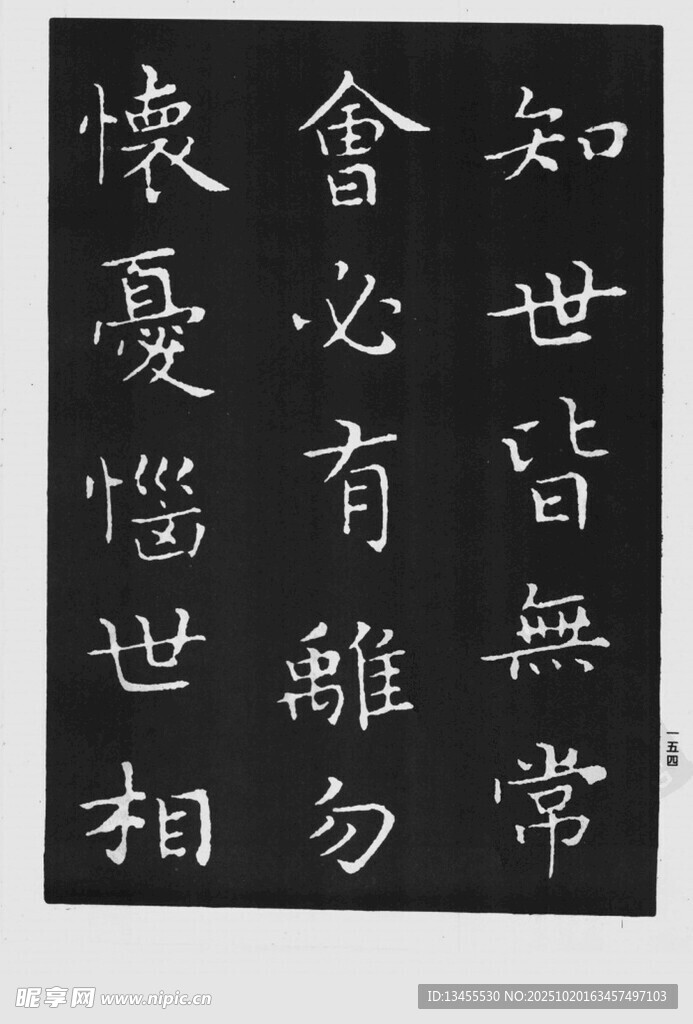 知世皆無常
會必有離勿
懷憂惱世相
一五四
昵享网 www.nipic.cn
ID:13455530 NO:20251020163457497103